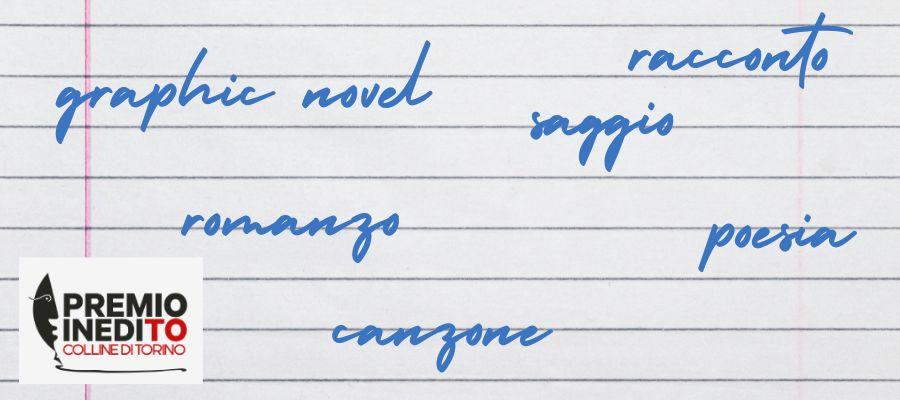 racconto
graphic novel
saggio
romanzo
poesia
canzone
PREMIO
INEDITO
COLLINE DI TORINO